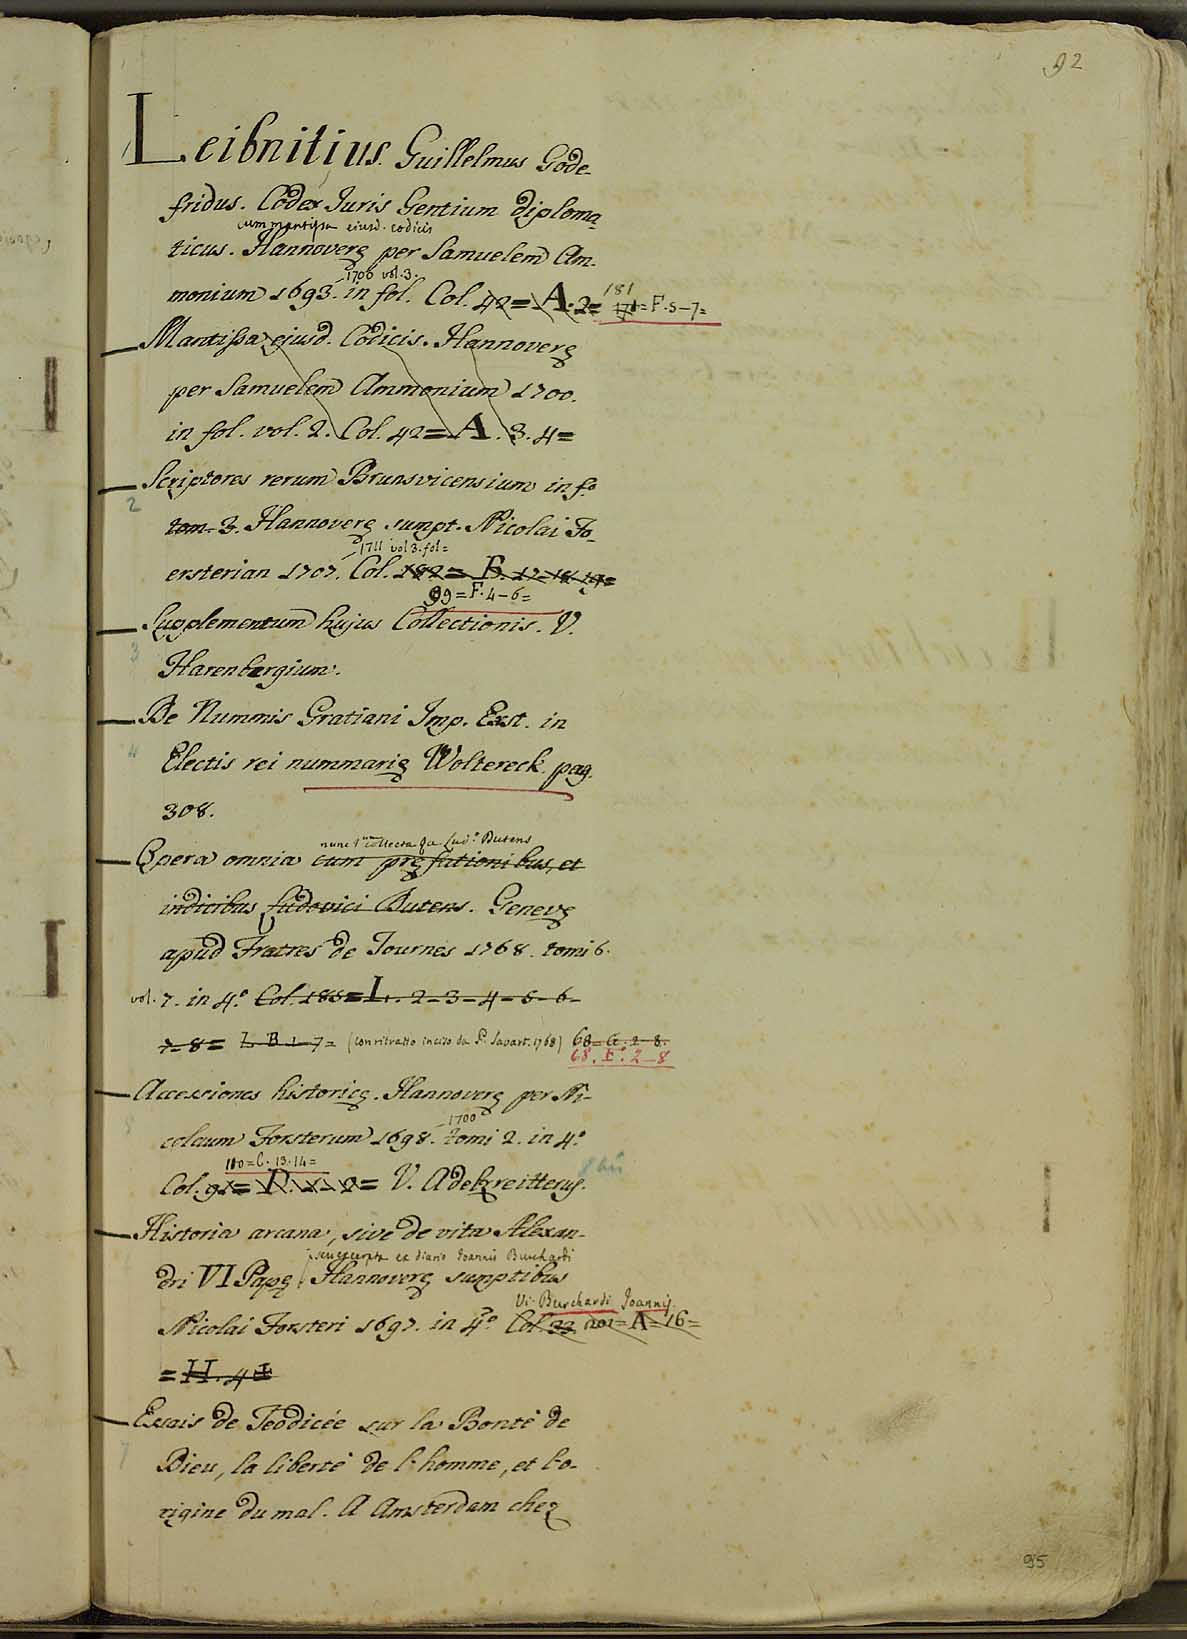 92
Leibnitius. Guillelmus Gode-
fridus. Codex Juris Gentium diploma-
cum mantissa ejusd. codicis
ticus. Hannoverę per Samuelem Am-
1700 vol. 3.
monium 1693. in fol. Col. 42 = A. 2 = 181 = F. 5-7 =
Mantissa ejusd. Codicis. Hannoverę
per Samuelem Ammonium 1700.
in fol. vol. 2. Col. 42 = A. 3. 4 =
Scriptores rerum Brunsvicensium in fo
2
tom. 3. Hannoverę sumpt. Nicolai Fo-
1711 vol 3. fol =
ersterian 1707. Col. 182 = B. 17-18-19 =
99 = F. 4-6 =
Supplementum hujus Collectionis. V.
3
Harenbergium.
De Nummis Gratiani Imp. Exst. in
4
Electis rei nummarię Woltereck pag.
308.
nunc collecta Lud.º Dutens
Opera omnia cum pręfationibus, et
indicibus Ludovici Dutens. Genevę
apud Fratres de Tournes 1768. tomi 6.
vol. 7. in 4.º Col. 185 = L. 2-3-4-5-6-
7-8 = L. B. 1-7 = (con ritratto inciso da P. Savart. 1768) 68 = G. 2-8.
68. E. 2-8
Accessiones historicę. Hannoverę per Ni-
1700
colaum Forsterum 1698. tomi 2. in 4.º
110 = C. 13-14 =
Col. 91 = D. 1-2 = V. Adelzreitterus.
Historia arcana, sive de vita Alexan-
seu excerpta ex diario Joannis Burchardi
dri VI Papę. Hannoverę sumptibus
Vi. Burchardi Joannis
Nicolai Forsteri 1697. in 4.º Col. 33 = A = 16 =
= H. 4 =
Essais de Teodicée sur la Bonté de
7
Dieu, la liberté de l'homme, et l'o-
rigine du mal. A Amsterdam chez
95